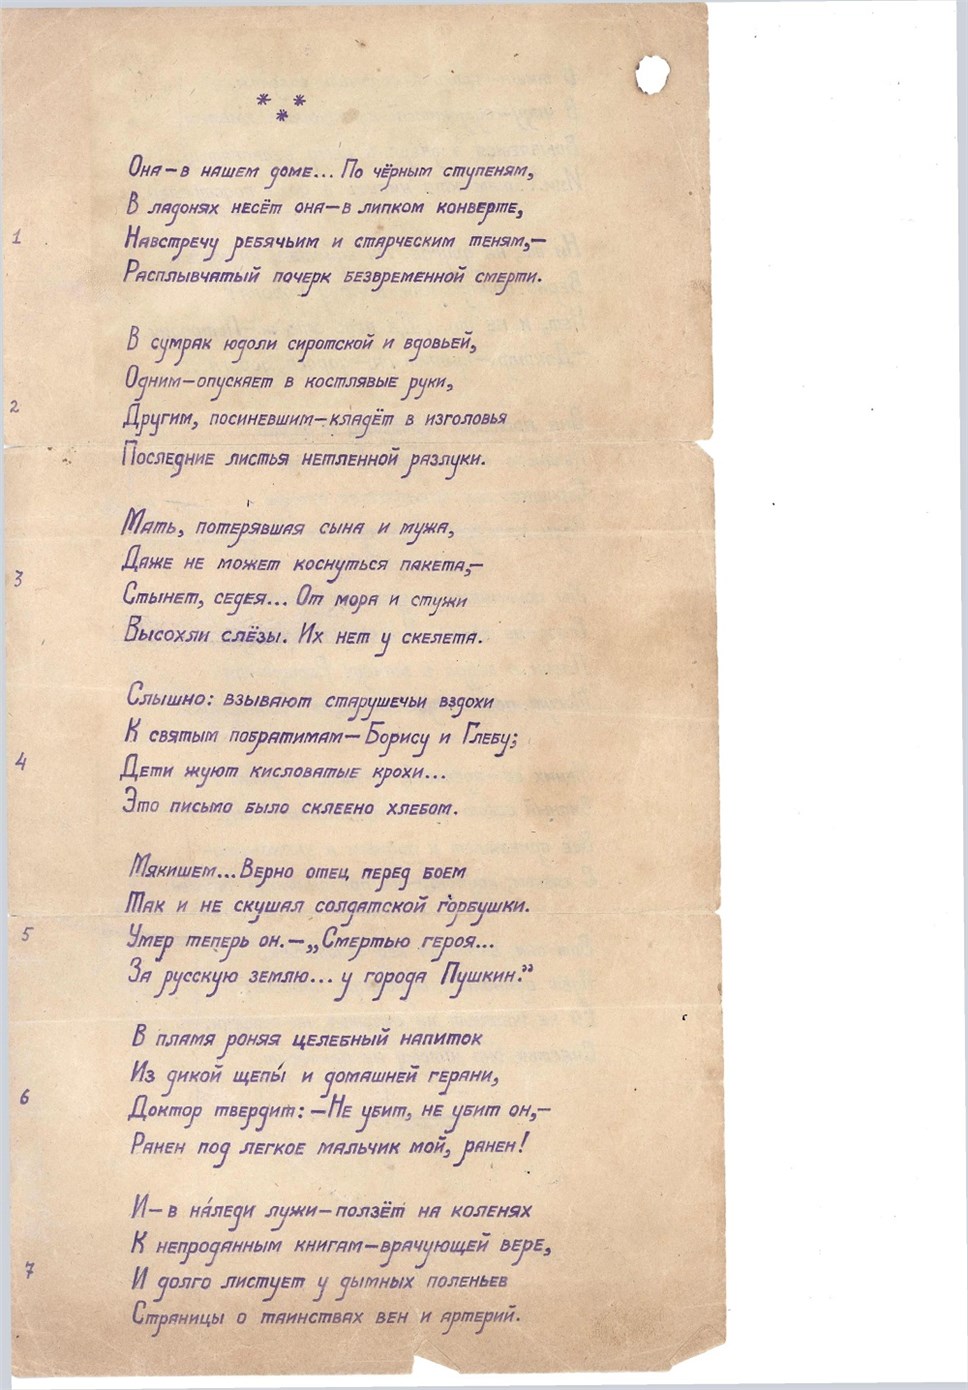 * * *
Она—в нашем доме... По чёрным ступеням,
В ладонях несёт она—в липком конверте,
1
Навстречу ребячьим и старческим теням,—
Расплывчатый почерк безвременной смерти.
В сумрак юдоли сиротской и вдовьей,
Одним—опускает в костлявые руки,
2
Другим, посиневшим—кладёт в изголовья
Последние листья нетленной разлуки.
Мать, потерявшая сына и мужа,
Даже не может коснуться пакета,—
3
Стынет, седея... От мора и стужи
Высохли слёзы. Их нет у скелета.
Слышно: взывают старушечьи вздохи
К святым побратимам—Борису и Глебу;
4
Дети жуют кисловатые крохи...
Это письмо было склеено хлебом.
Мякишем... Верно отец перед боем
Так и не скушал солдатской горбушки.
5
Умер теперь он.—„Смертью героя...
За русскую землю... у города Пушкин.”
В пламя роняя целебный напиток
Из дикой щепы́ и домашней герани,
6
Доктор твердит:—Не убит, не убит он,—
Ранен под легкое мальчик мой, ранен!
И—в на́леди лужи—ползёт на коленях
К непроданным книгам—врачующей вере,
7
И долго листует у дымных поленьев
Страницы о таинствах вен и артерий.